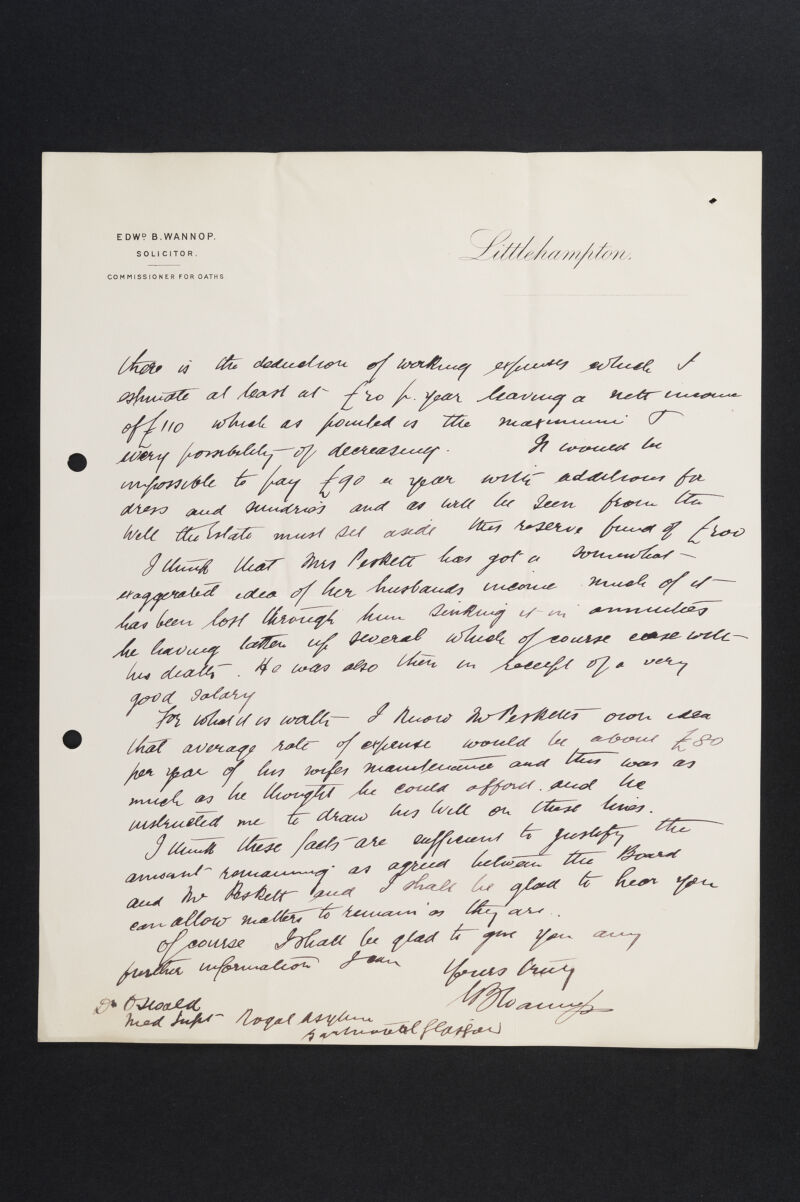 EDWD. B. WANNOP.
SOLICITOR.
COMMISSIONER FOR OATHS
Littlehampton.
there is the deduction of working expenses which I
estimate at least at £20 p. year leaving a nett income
of £110 which as pointed is the maximum &
every possibility of decreasing. It would be
impossible to pay £90 a year with additions for
dress and sundries and as will be seen from the
Will the Estate must set aside this reserve fund of £200
I think that Mrs Peskett has got a somewhat
exaggerated idea of her husbands income much of it
has been lost through him sinking it in annuities
he having taken up several which of course cease with
his death. He was also then in receipt of a very
good salary
For what it is worth I know Mr Pesketts own idea
that average rate of expense would be about £80
per year of his wifes maintenance and this was as
much as he thought he could afford. and he
instructed me to draw his Will on these lines.
I think these facts are sufficient to justify the
amount remaining as agreed between the Board
and Mr Peskett and I shall be glad to hear you
can allow matters to remain as they are..
Of course I shall be glad to give you any
further information I can
Yours truly
EBWannop
Dr Oswald
Med Supt Royal Asylum
Gartnavel Glasgow